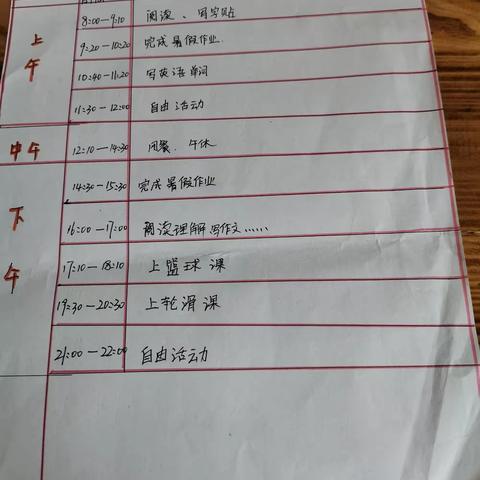 上午
8:00—9:10 阅读、写字帖
9:20—10:20 完成暑假作业.
10:40—11:20 写英语单词
11:30—12:00 自由活动
中午
12:10—14:30 闭餐、午休
下午
14:30—15:30 完成暑假作业
16:00—17:00 阅读理解写作文……
17:10—18:10 上篮球课
19:30—20:30 上轮滑课
21:00—22:00 自由活动